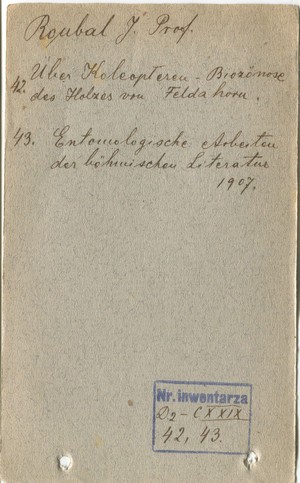 Roubal J. Prof.
42. Über Koleopteren-Biozönose
des Holzes von Feldahorn.
43. Entomologische Arbeiten
der böhmischen Literatur
1907.
Nr. inwentarza
D2-CXXIX
42, 43.